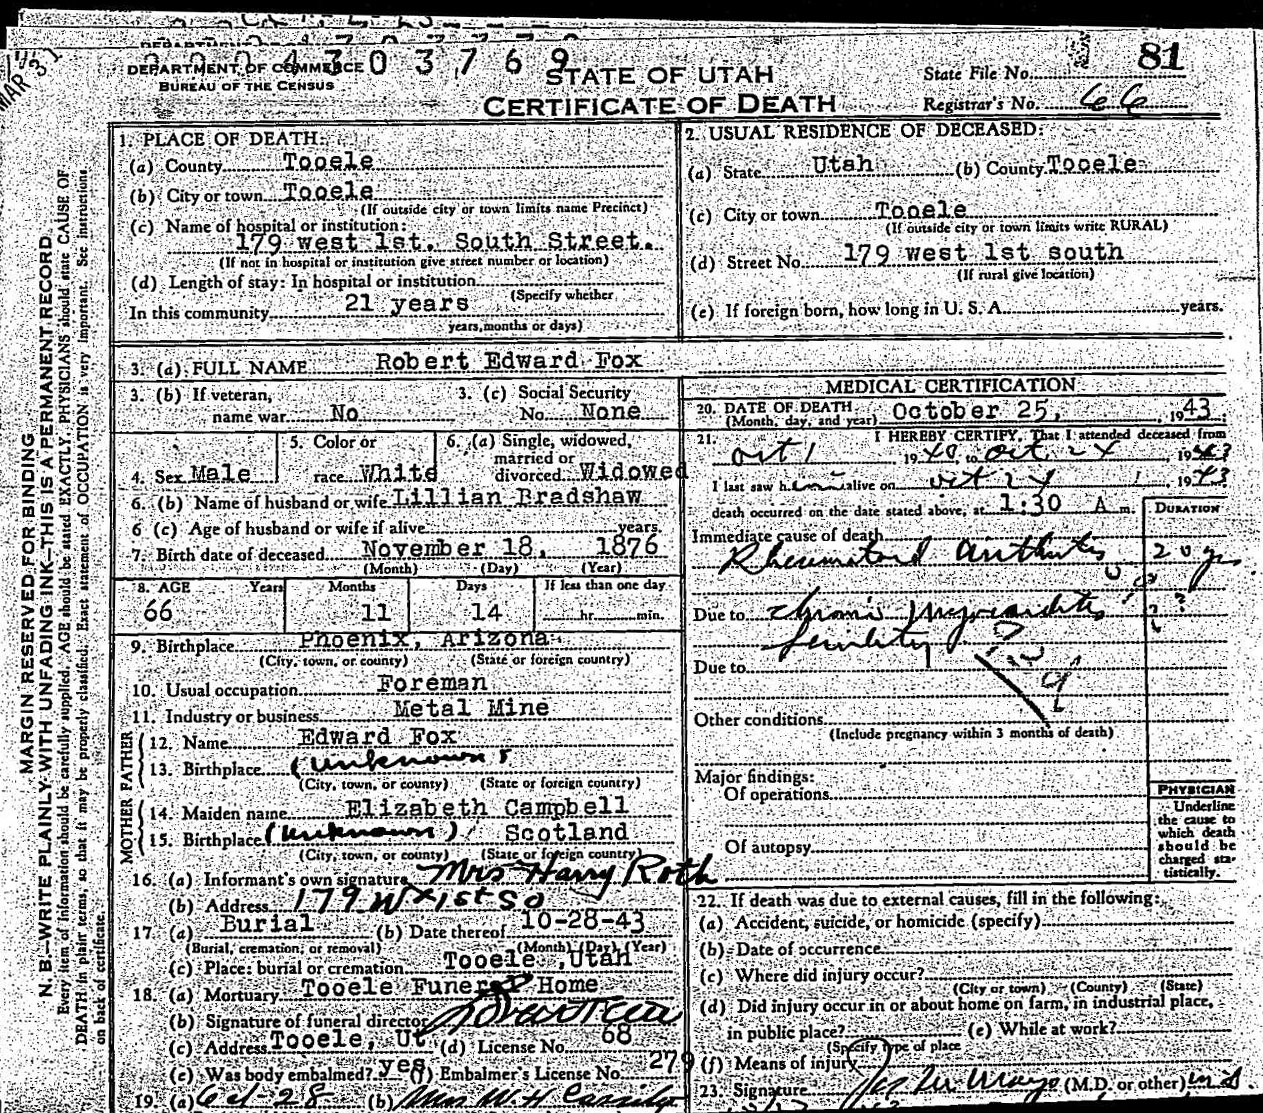 81
004303769
DEPARTMENT OF COMMERCE
BUREAU OF THE CENSUS
STATE OF UTAH
CERTIFICATE OF DEATH
State File No.
Registrar's No. 66
MAR 31
MARGIN RESERVED FOR BINDING
N. B.—WRITE PLAINLY WITH UNFADING INK—THIS IS A PERMANENT RECORD
Every item of information should be carefully supplied. AGE should be stated EXACTLY. PHYSICIANS should state CAUSE OF
DEATH in plain terms, so that it may be properly classified. Exact statement of OCCUPATION is very important. See instructions
on back of certificate.
1. PLACE OF DEATH:
(a) County Tooele
(b) City or town Tooele
(If outside city or town limits name Precinct)
(c) Name of hospital or institution:
179 west 1st. South Street.
(If not in hospital or institution give street number or location)
(d) Length of stay: In hospital or institution
(Specify whether
In this community 21 years
years, months or days)
2. USUAL RESIDENCE OF DECEASED:
(a) State Utah (b) County Tooele
(c) City or town Tooele
(If outside city or town limits write RURAL)
(d) Street No. 179 west 1st south
(If rural give location)
(e) If foreign born, how long in U. S. A. years.
3. (a) FULL NAME Robert Edward Fox
3. (b) If veteran, name war No
3. (c) Social Security No. None
4. Sex Male
5. Color or race White
6. (a) Single, widowed, married or divorced Widowed
6. (b) Name of husband or wife Lillian Bradshaw
6 (c) Age of husband or wife if alive years.
7. Birth date of deceased November 18, 1876
(Month) (Day) (Year)
8. AGE Years Months Days If less than one day
66 11 14 hr. min.
9. Birthplace Phoenix, Arizona
(City, town, or county) (State or foreign country)
10. Usual occupation Foreman
11. Industry or business Metal Mine
FATHER
12. Name Edward Fox
13. Birthplace (Unknown)
(City, town, or county) (State or foreign country)
MOTHER
14. Maiden name Elizabeth Campbell
15. Birthplace (Unknown) Scotland
(City, town, or county) (State or foreign country)
16. (a) Informant's own signature Mrs Harry Roth
(b) Address 179 W 1st So
17. (a) Burial (b) Date thereof 10-28-43
(Burial, cremation, or removal) (Month) (Day) (Year)
(c) Place: burial or cremation Tooele, Utah
18. (a) Mortuary Tooele Funeral Home
(b) Signature of funeral director
(c) Address Tooele, Ut. (d) License No. 68
(e) Was body embalmed? yes (f) Embalmer's License No. 279
19. (a) Oct-28 (b) Mrs W H
MEDICAL CERTIFICATION
20. DATE OF DEATH October 25, 1943
(Month, day, and year)
21. I HEREBY CERTIFY, That I attended deceased from
Oct 1 1940 to Oct 24 1943
I last saw him alive on Oct 24, 1943
death occurred on the date stated above, at 1:30 A m.
DURATION
Immediate cause of death
Rheumatoid arthritis 20 yrs
Due to chronic myocarditis ?
Senility
Due to
Other conditions
(Include pregnancy within 3 months of death)
Major findings:
Of operations
Of autopsy
PHYSICIAN
Underline
the cause to
which death
should be
charged sta-
tistically.
22. If death was due to external causes, fill in the following:
(a) Accident, suicide, or homicide (specify)
(b) Date of occurrence
(c) Where did injury occur?
(City or town) (County) (State)
(d) Did injury occur in or about home on farm, in industrial place,
in public place? (e) While at work?
(Specify type of place
(f) Means of injury
23. Signature (M.D. or other) M.D.